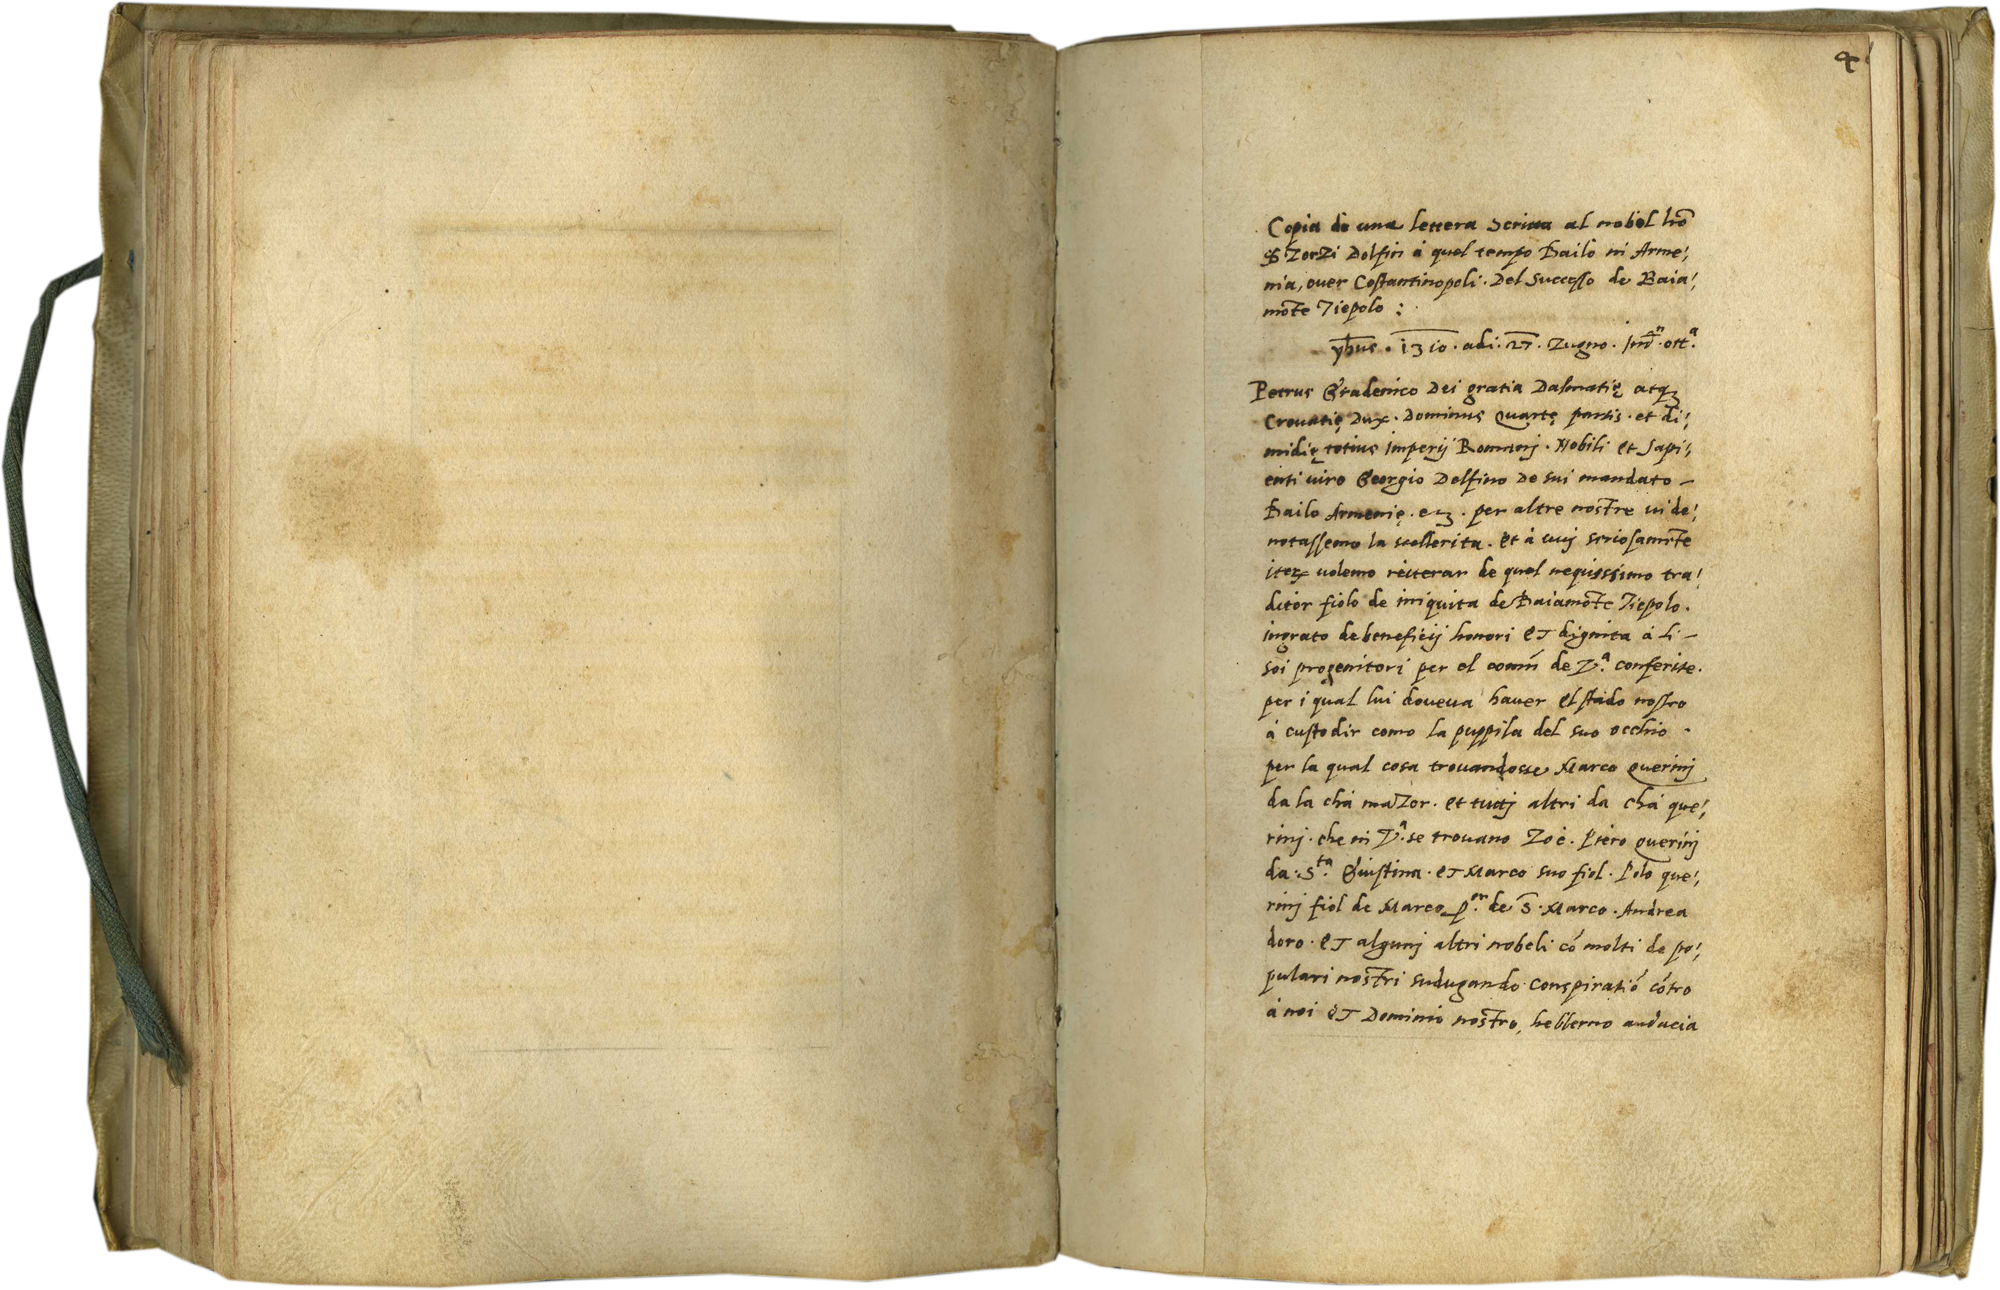 4
Copia de una lettera Scritta al nobel hõ
Zorzi Dolfin á quel tempo Bailo in Arme;
nia, ouer Costantinopoli. Del Successo de Baia;
mõte Tiepolo :
yhus . 1310 . adi . 27 . Zugno . Indⁿ. ottª.
Petrus Gradenico Dei gratia Dalmatię atq₃
Crouatię Dux. Dominus Quartę partis. et di;
midię totius Imperij Romanj. Nobili et Sapi;
enti uiro Georgio Delfino De sui mandato –
Bailo Armenię. ec. per altre nostre ui de;
notassemo la scellerita. Et á uuj seriosamẽte
uolemo reiterar de quel nequissimo tra;
ditor fiolo de iniquita de Baiamõte Tiepolo.
ingrato de beneficij honori et dignita á li –
soi progenitori per el comũ de Vª. conferite.
per i qual lui doueua hauer el stado nostro
á custodir como la puppila del suo occhio .
per la qual cosa trouandosse Marco Querinj
da la chá mazor. et tuttj altri da chá que;
rinj. che in Vª. se trouano Zoé. Piero Querinj
da Sᵗᵃ. Giustina. et Marco suo fiol. Polo que;
rinj fiol de Marco pᵒʳ. de S. Marco. Andrea
doro. et algunj altri nobeli cõ molti de po;
pulari nostri sudugando conspiratiõ cõtro
á noi et Dominio nostro, hebbeno audacia